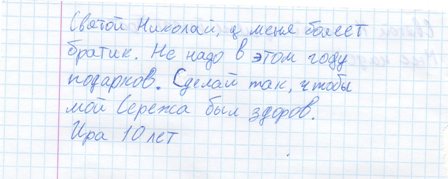 Святой Николай, у меня болеет
братик. Не надо в этом году
подарков. Сделай так, чтобы
мой Сережа был здоров.
Ира 10 лет